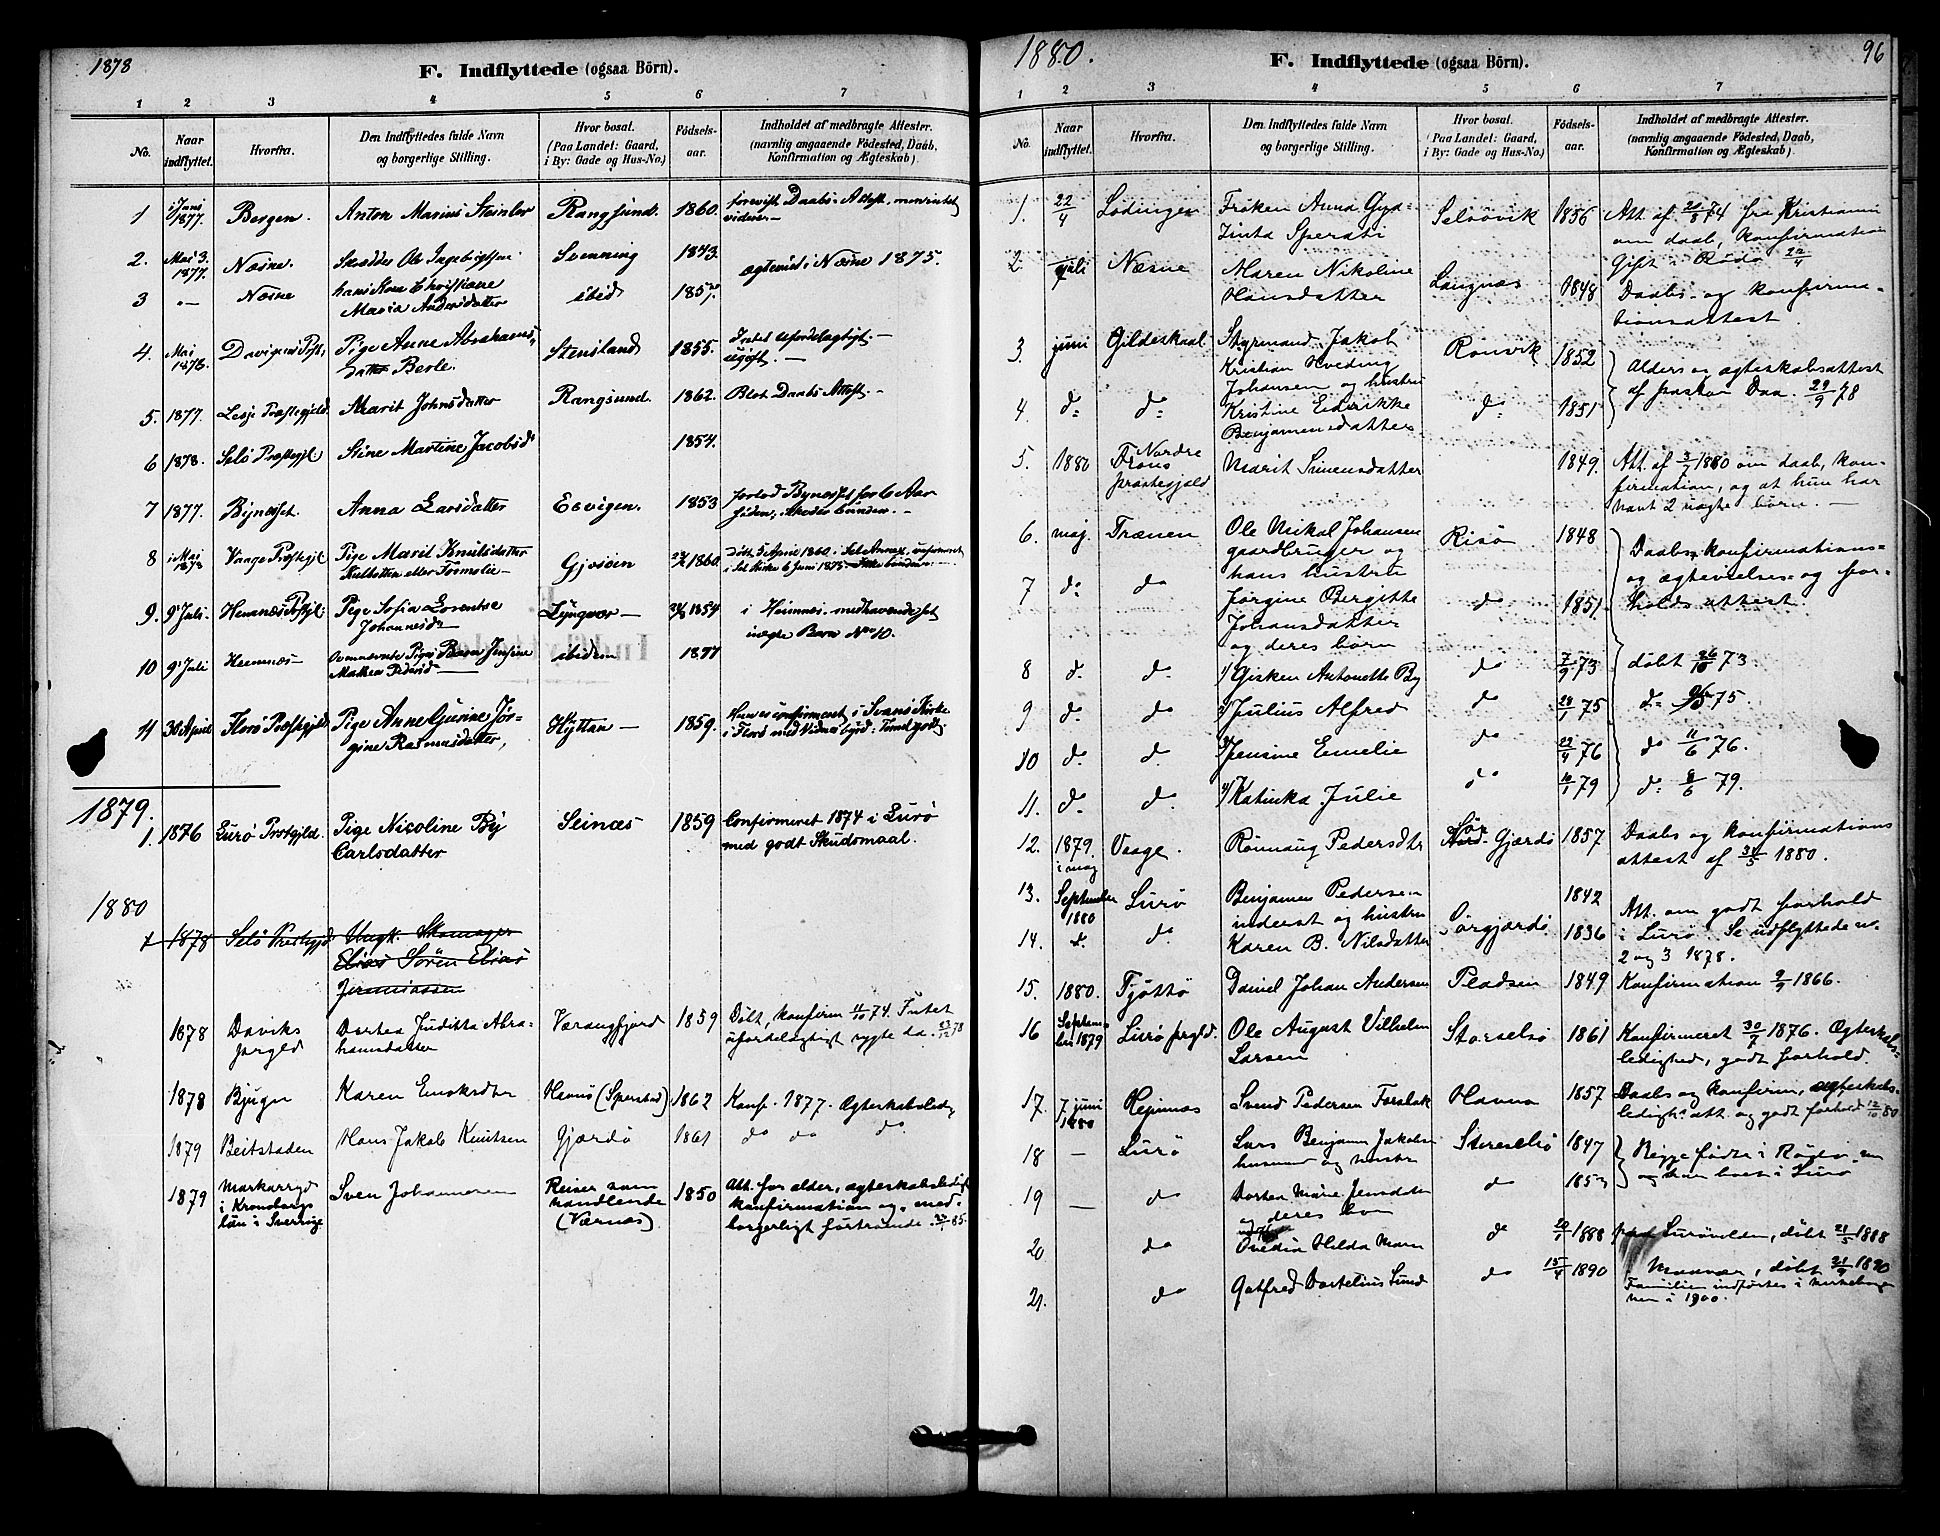 1878
F. Indflyttede (ogsaa Börn).
1 2 3 4 5 6 7
No.
Naar indflyttet.
Hvorfra.
Den Indflyttedes fulde Navn og borgerlige Stilling.
Hvor bosat. (Paa Landet: Gaard, i By: Gade og Hus-No.)
Födsels-aar.
Indholdet af medbragte Attester. (navnlig angaaende Födested, Daab, Konfirmation og Ægteskab).
1 i Juni 1877. Bergen. Anton Marius Steinler Rangsund. 1860. forevist Daabs-Attest
2. Mai 3. 1877. Næsne. Ole Ingebrigtsen Svenning 1843. ægteviet i Næsne 1875.
3 "— Næsne hans Kone Christiane
Maria Andersdatter ibid
4. Mai 1878. Pige Anne Abrahams-
datter Berle. Stensland 1855. Intet ufordelagtigt.—
ugift.—
5. 1877. Lesje Præstegjeld Marit Johnsdatter Rangsund. 1862. Blot Daabs Attest.—
6 1878. Selö Præstegjl: Stine Martine Jacobsd: 1854.
7 1877. Bynesset. Anna Larsdatter Esvigen. 1853 forlod Bynesset
8 i Mai 1878 Vaage Præstegjl. Pige Marit Knutsdatter
Gjesöen 1860.
9. 9' Juli. Hemnæs Pige Sofia Lorentse
Johannesd: Lyngvær— 1854 i Hemnes. medhavende
uægte Barn No 10.
10 9' Juli Hemnæs— Pige Barn Jensine
Mathea Pedersd: ibidem 1877
11 30 April Florö Præstegjeld Pige Anne Gurine Jör-
gine Rasmusdatter, Hyttan— 1859. confirmeret i Svanö Kirke
1879.
1. 1876 Lurö Prstgjld. Pige Nicoline By
Carlsdatter Seinæs 1859 Confirmeret 1874 i Lurö
med godt Skudsmaal.
1880
1 1878 Selö Prestgjd Ungk. Skomager
Elias Sören Elias
Jeremiassen
1878 Daviks prgld Dortea Juditta Abra-
hamsdatter Værangfjord 1859 Döbt, konfirm 11/10 74. Intet
ufordelagtigt rygte da. 23/12 78
1878 Bjugn Karen Enoksdtr Havnö 1862 Konf. 1877. Ægteskabsledig
1879 Beitstaden Hans Jakob Knutsen Gjærdö 1861 do do do
1879 Markaryd
i Kronobergs
län i Sverrige Sven Johannesen Reiser som
handlende
(Værnæs). 1850 Att. for alder, ægteskabsledigh
konfirmation og med-
borgerligt förtroende. 85.
1880. 96
F. Indflyttede (ogsaa Börn).
1 2 3 4 5 6 7
No.
Naar indflyttet.
Hvorfra.
Den Indflyttedes fulde Navn og borgerlige Stilling.
Hvor bosat. (Paa Landet: Gaard, i By: Gade og Hus-No.)
Födsels-aar.
Indholdet af medbragte Attester. (navnlig angaaende Födested, Daab, Konfirmation og Ægteskab).
1. 22/4 Lödingen Fröken Anna Gyd-
Sperati Selsövik 1856 Att. af 74 fra Kristiania
om daab, konfirmation
Gift i Rödö 22/4
2 juli Næsne Maren Nikoline
Hansdatter Langnæs 1848 Daabs- og konfirma-
tionsattest.
3. juni Gildeskaal Styrmand Jakob
Kristian Hveding
Johansen og hustru Rönvik 1852 Alders og ægteskabsattest
4. d: d: Kristine Eidrikke
Benjamensdatter d: 1851 af prosten Daa. 29/9 78
5. 1880 Nordre
Frons
præstegjeld Marit Simensdatter 1849. Att. af 3/7 1880 om daab, kon-
firmation, og at hun har
havt 2 uægte börn.—
6. maj. Trænen Ole Nikal Johansen
gaardbruger og
hans hustru Risö 1848 Daabs, konfirmations-
og ægtevielses- og for-
7 d: do Jörgine Bergitte
Johansdatter
og deres börn do 1851. holds attest.
8 d. d. 1) Gisken Antonette By do 7/9 73 döbt 26/10 73.
9 d. do 2) Julius Alfred do 75 d: 75.
10 d. d. 3) Jensine Emelie do 22/4 76 do 11/6 76.
11. d. d. 4) Katinka Julie do 10/1 79 d: 8/6 79.
12. 1879. i maj Vaage. Rönnaug Pedersdtr Sör Nord-Gjærdö 1857 Daabs og konfirmations
attest af 31/5 1880.
13. September 1880 Lurö Benjamin Pedersen
inderst og hustru Sörgjærdö 1842 Att. om godt forhold
14. d. do Karen B. Nilsdatter 1836 i Lurö. Se udflyttede no.
2 og 3 1878.
15. 1880. Tjöttö Daniel Johan Andersen Pladsen 1849 Konfirmation 9/9 1866.
16 Septem-
ber 1879 Lurö prgld. Ole August Vilhelm
Larsen Storselsö 1861 Konfirmeret 30/7 1876. Ægteskabs-
ledighed, godt forhold.
17. 7. juni 1880 Hegnnæs Svend Pedersen Forsbak Havnö 1857 Daabs og konfirm, ægteskabs-
ledighs att. og godt forhold 12/10 80
18 — Lurö Lars Benjamin Jakobsen
husmand og hustru Storselsö 1847 Begge födte i Rödö, men
19 — do Dorthea Marie Jensdatter
og deres börn do 185 de har boet i Lurö
20 do Ovedia Hilda Marn do 20/1 1888 paa Luröholden, döbt 21/5 1888
21. do Gotfred Dortelius Lund do 15/4 1890 i Maavær, döbt 21/9 1890
Familien indförtes i
1900.